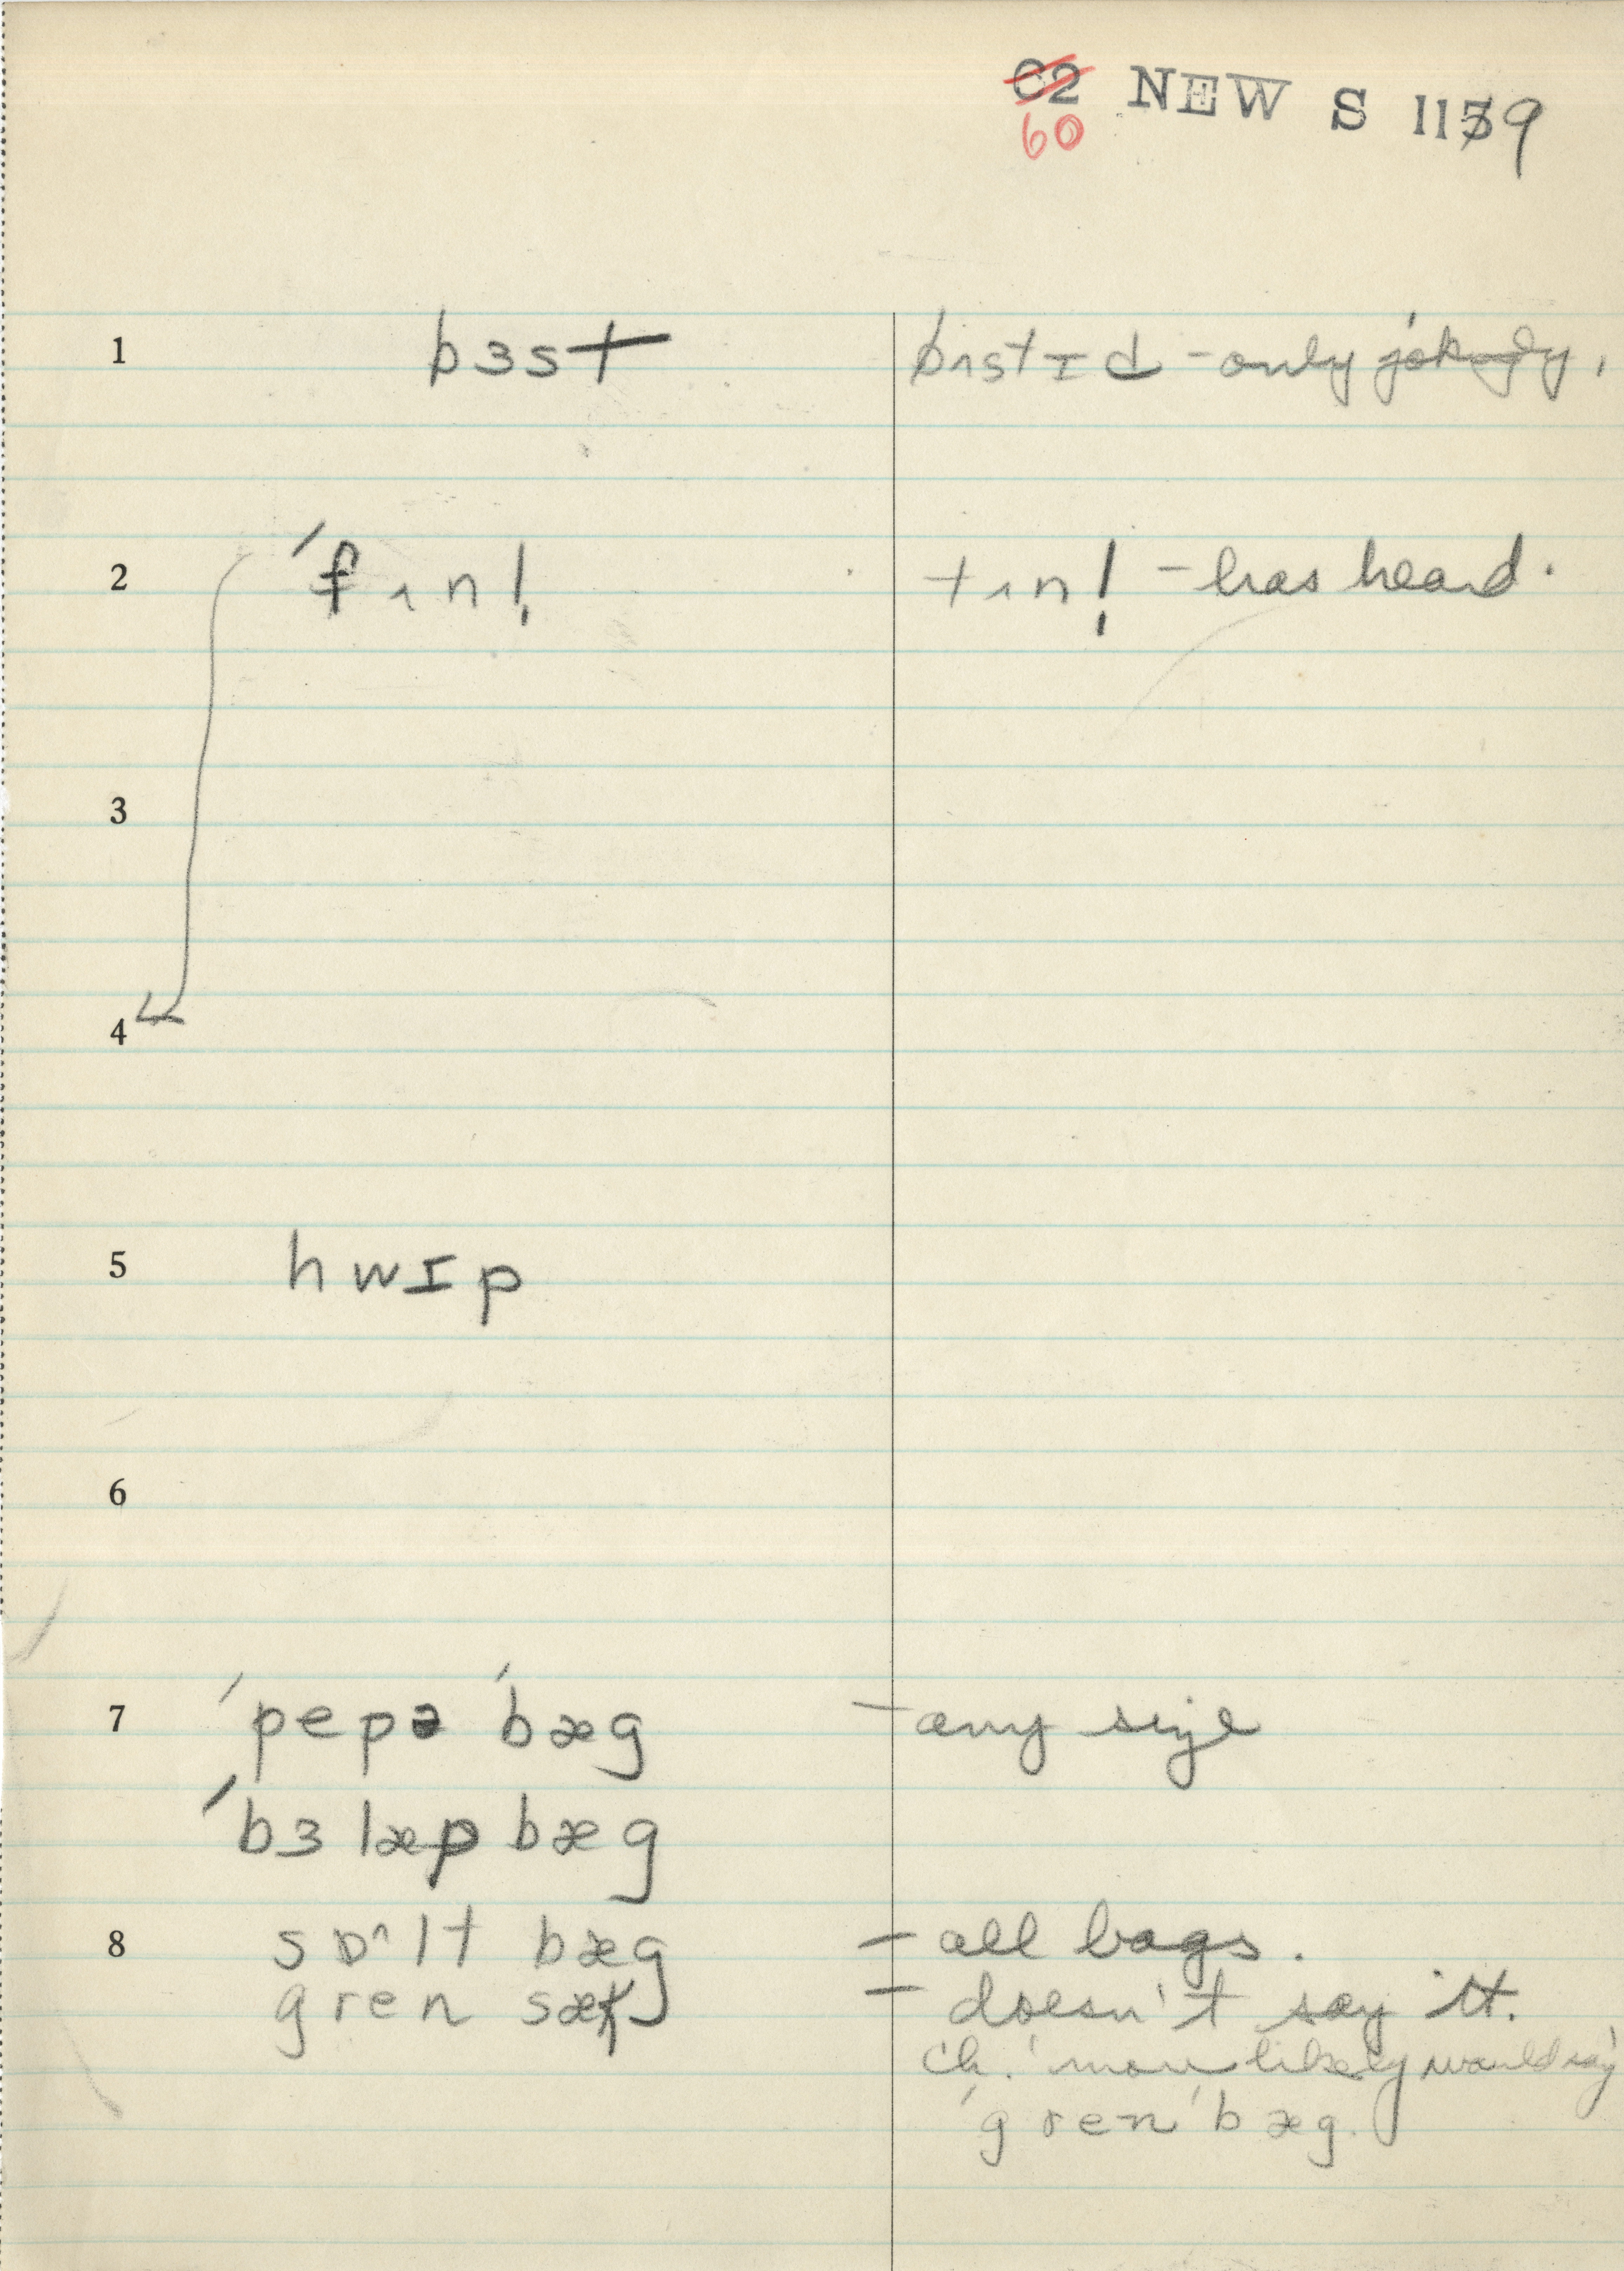 C2 NEW S 1139
60
1 bɜst bʌstɪd - only jokingly.
2 ˊfʌnl̩ tʌnl̩ - has heard.
3
4
5 hwɪp
6
7 ˊpepə ˊbæg - any size
ˊbɜlæp bæg
8 sɒ^lt bæg - all bags.
gren sæk - doesn't say it.
Ch. 'more likely would say
ˊgren ˊbæg.